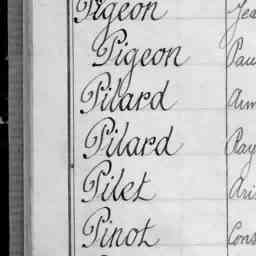 Pigeon Jea
Pigeon Pau
Pilard Arm
Pilard Ray
Pilet Ari
Pinot Cons